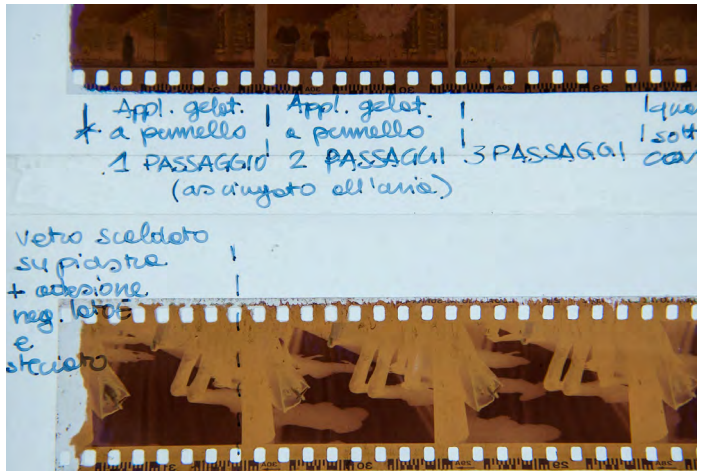 Appl. gelat.
a pennello
1 PASSAGGIO
Appl. gelat.
a pennello
2 PASSAGGI
3 PASSAGGI
(asciugato all'aria)
vetro scaldato
su piastra
+ adesione
neg. lato E
e